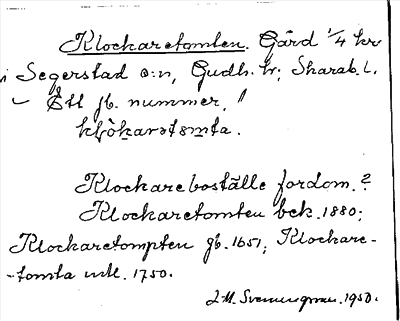 Klockaretomten. Gård 1/4 kr
i Segerstad s:n, Gudh. hr, Skarab. l.
– Ett jb. nummer.
Klockareboställe fordom.?
Klockaretomten bek. 1880;
Klockaretompten jb. 1651; Klockare-
-tomta mtl. 1750.
J.M. 1950.